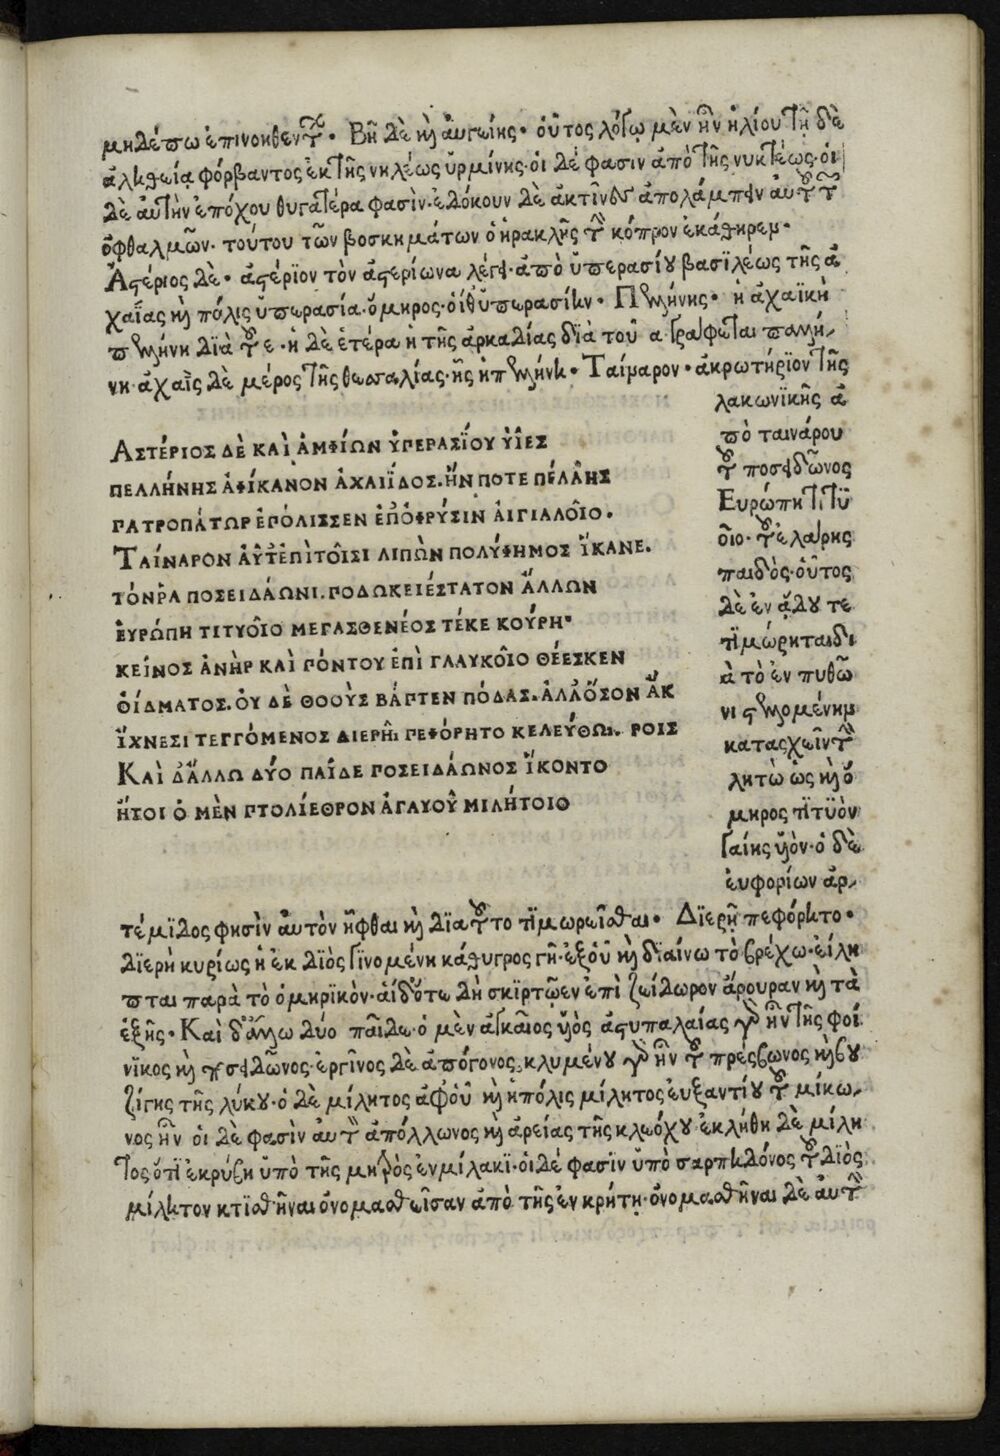 μηδέπω ἐπινοηθέντος. Βῆ δὲ καὶ αὐγείης. οὗτος λόγῳ μὲν ἦν ἡλίου τῇ δὲ
ἀληθείᾳ φόρβαντος ἐκ τῆς νηλέως ὑρμίνης. οἱ δέ φασιν ἀπὸ τῆς νυκτέως. οἱ
δὲ αὐτὴν ἐπόχου θυγατέρα φασὶν. ἐδόκουν δὲ ἀκτῖνες ἀπολάμπειν αὐτοῦ τῶν
ὀφθαλμῶν. τούτου τῶν βοσκημάτων ὁ ἡρακλῆς τὴν κόπρον ἐκάθηρεν.
Ἀστέριος δὲ. ἀστέριον τὸν ἀστερίωνα λέγει. ἀπὸ ὑπερασίου βασιλέως τῆς ἀ
χαΐας καὶ πόλις ὑπερασία. ὅμηρος. οἵθ' ὑπερασίην. Πελλήνης. ἡ ἀχαϊκὴ
πελλήνη διὰ τοῦ ε. ἡ δὲ ἑτέρα ἡ τῆς ἀρκαδίας διὰ τοῦ α γράφεται παλλή,
νη. ἀχαιῒς δὲ μέρος τῆς θεσσαλίας. ἧς ἡ πελλήνη. Ταίναρον. ἀκρωτήριον τῆς
λακωνικῆς ἀ
πὸ ταινάρου
τοῦ ποσειδῶνος
Εὐρώπη Τιτυ
οῖο. τοῦ ἐλαρης
παιδὸς. οὗτος
δὲ ἐν ᾅδου τε
τιμώρηται δι
ὰ τὸ ἐν πυθῶ
νι στελλομένην
κατασχεῖν τὴν
λητὼ ὡς καὶ ὅ
μηρος τιτυὸν
γαίης υἱὸν. ὁ δὲ
εὐφορίων ἀρ,
ΑΣΤΈΡΙΟΣ ΔῈ ΚΑῚ ἈΜΦΊΩΝ ὙΠΕΡΑΣΊΟΥ ὙΙ͂ΕΣ
ΠΕΛΛΉΝΗΣ ἈΦΊΚΑΝΟΝ ἈΧΑΙΪΔΟΣ. ἭΝ ΠΟΤΕ ΠΈΛΛΗΣ
ΠΑΤΡΟΠΆΤΩΡ ἘΠΌΛΙΣΣΕΝ ἘΠ' ὈΦΡΎΣΙΝ ἈΙΓΙΑΛΟΙ͂Ο.
ΤΑΊΝΑΡΟΝ ἈΥ͂Τ' ἘΠῚ ΤΟΙ͂ΣΙ ΛΙΠῺΝ ΠΟΛΎΦΗΜΟΣ ἽΚΑΝΕ.
ΤΌΝ ΡΑ ΠΟΣΕΙΔΆΩΝΙ. ΠΟΔΩΚΕΙΈΣΤΑΤΟΝ ἌΛΛΩΝ
ἘΥΡΏΠΗ ΤΙΤΥΟΙ͂Ο ΜΕΓΑΣΘΕΝΈΟΣ ΤΈΚΕ ΚΟΎΡΗ.
ΚΕΙ͂ΝΟΣ ἈΝῊΡ ΚΑῚ ΠΌΝΤΟΥ ἘΠῚ ΓΛΑΥΚΟΙ͂Ο ΘΈΕΣΚΕΝ
ὈΊΔΜΑΤΟΣ. ὈΥ ΔῈ ΘΟΟῪΣ ΒΆΠΤΕΝ ΠΌΔΑΣ. ἈΛΛ' ὍΣΟΝ ἌΚ
ἼΧΝΕΣΙ ΤΕΓΓΌΜΕΝΟΣ ΔΙΕΡΗ͂Ι ΠΕΦΌΡΗΤΟ ΚΕΛΕΎΘΩΙ. ΡΟΙΣ
ΚΑῚ Δ' ἌΛΛΩ ΔΎΟ ΠΑΙ͂ΔΕ ΠΟΣΕΙΔΆΩΝΟΣ ἽΚΟΝΤΟ
ἬΤΟΙ Ὁ ΜῈΝ ΠΤΟΛΊΕΘΡΟΝ ἈΓΑΥΟΥ͂ ΜΙΛΉΤΟΙΟ
τέμιδος φησὶν αὐτὸν ἧφθαι καὶ διὰ τοῦτο τιμωρεῖσθαι. Διερῇ πεφόρητο.
διερὴ κυρίως ἡ ἐκ διὸς γινομένη κάθυγρος γῆ. ἐξ οὗ καὶ διαίνω τὸ βρέχω. εἴλη
πται παρὰ τὸ ὁμηρικὸν. αἱ δ' ὅτε δὴ σκιρτῷεν ἐπὶ ζείδωρον ἄρουραν καὶ τὰ
ἑξῆς. Καὶ δ' ἄλλω δύο παῖδε. ὁ μὲν ἀγκαῖος υἱὸς ἀστυπαλαίας ἦν τῆς φοί
νικος καὶ ποσειδῶνος. ἐργῖνος δὲ ἀπόγονος κλυμένου ἦν τοῦ πρέσβωνος καὶ βου
ζίγης τῆς λύκου. ὁ δὲ μίλητος ἀφ' οὗ καὶ ἡ πόλις μίλητος εὐξαντίου τοῦ μίνω,
νος ἦν οἱ δὲ φασὶν αὐτὸν ἀπόλλωνος καὶ ἀρείας τῆς κλεόχου ἐκλήθη δὲ μίλη
τος ὅτι ἐκρύβη ὑπὸ τῆς μητρὸς ἐν μίλακι. οἱ δέ φασιν ὑπὸ σαρπηδόνος τοῦ διὸς
μίλητον κτισθῆναι ὀνομασθεῖσαν ἀπὸ τῆς ἐν κρήτῃ. ὀνομασθῆναι δὲ αὐτὴν